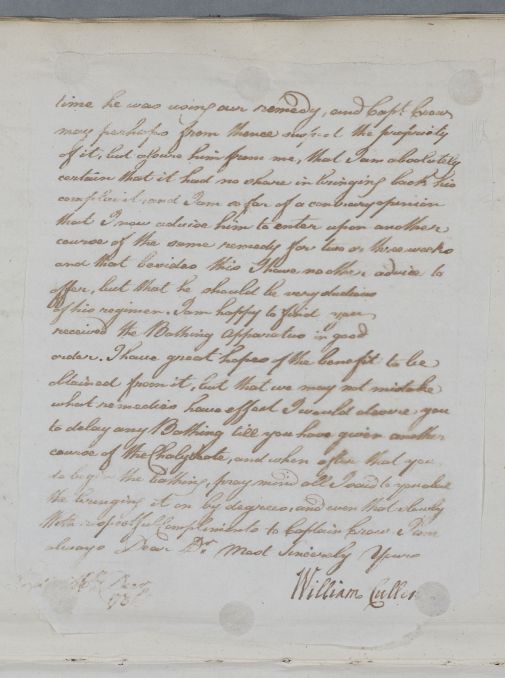 time he was using our remedy, and Capt. Craw
may perhaps from thence suspect the propriety
of it, but assure him from me, that I am absolutely
certain that it had no share in bringing back his
complaint, and I am so far of a contrary opinion
that I now advise him to enter upon another
course of the same remedy for two or three weeks
and that besides this I have no other advice to
offer, but that he should be very studious
of his regimen. I am happy to find you
received the Bathing Apparatus in good
order. I have great hopes of the benefit to be
obtained from it, but that we may not mistake
what remedies have effect I would desire you
to delay any Bathing till you have given another
course of the Chalybeate, and when after that you
to begin the bathing, pray mind all I said to you about
the bringing it on by degrees, and even that slowly
With respectfull Compliments to Captain Craw I am
always Dear Dr. Most Sincerely Yours
William Cullen